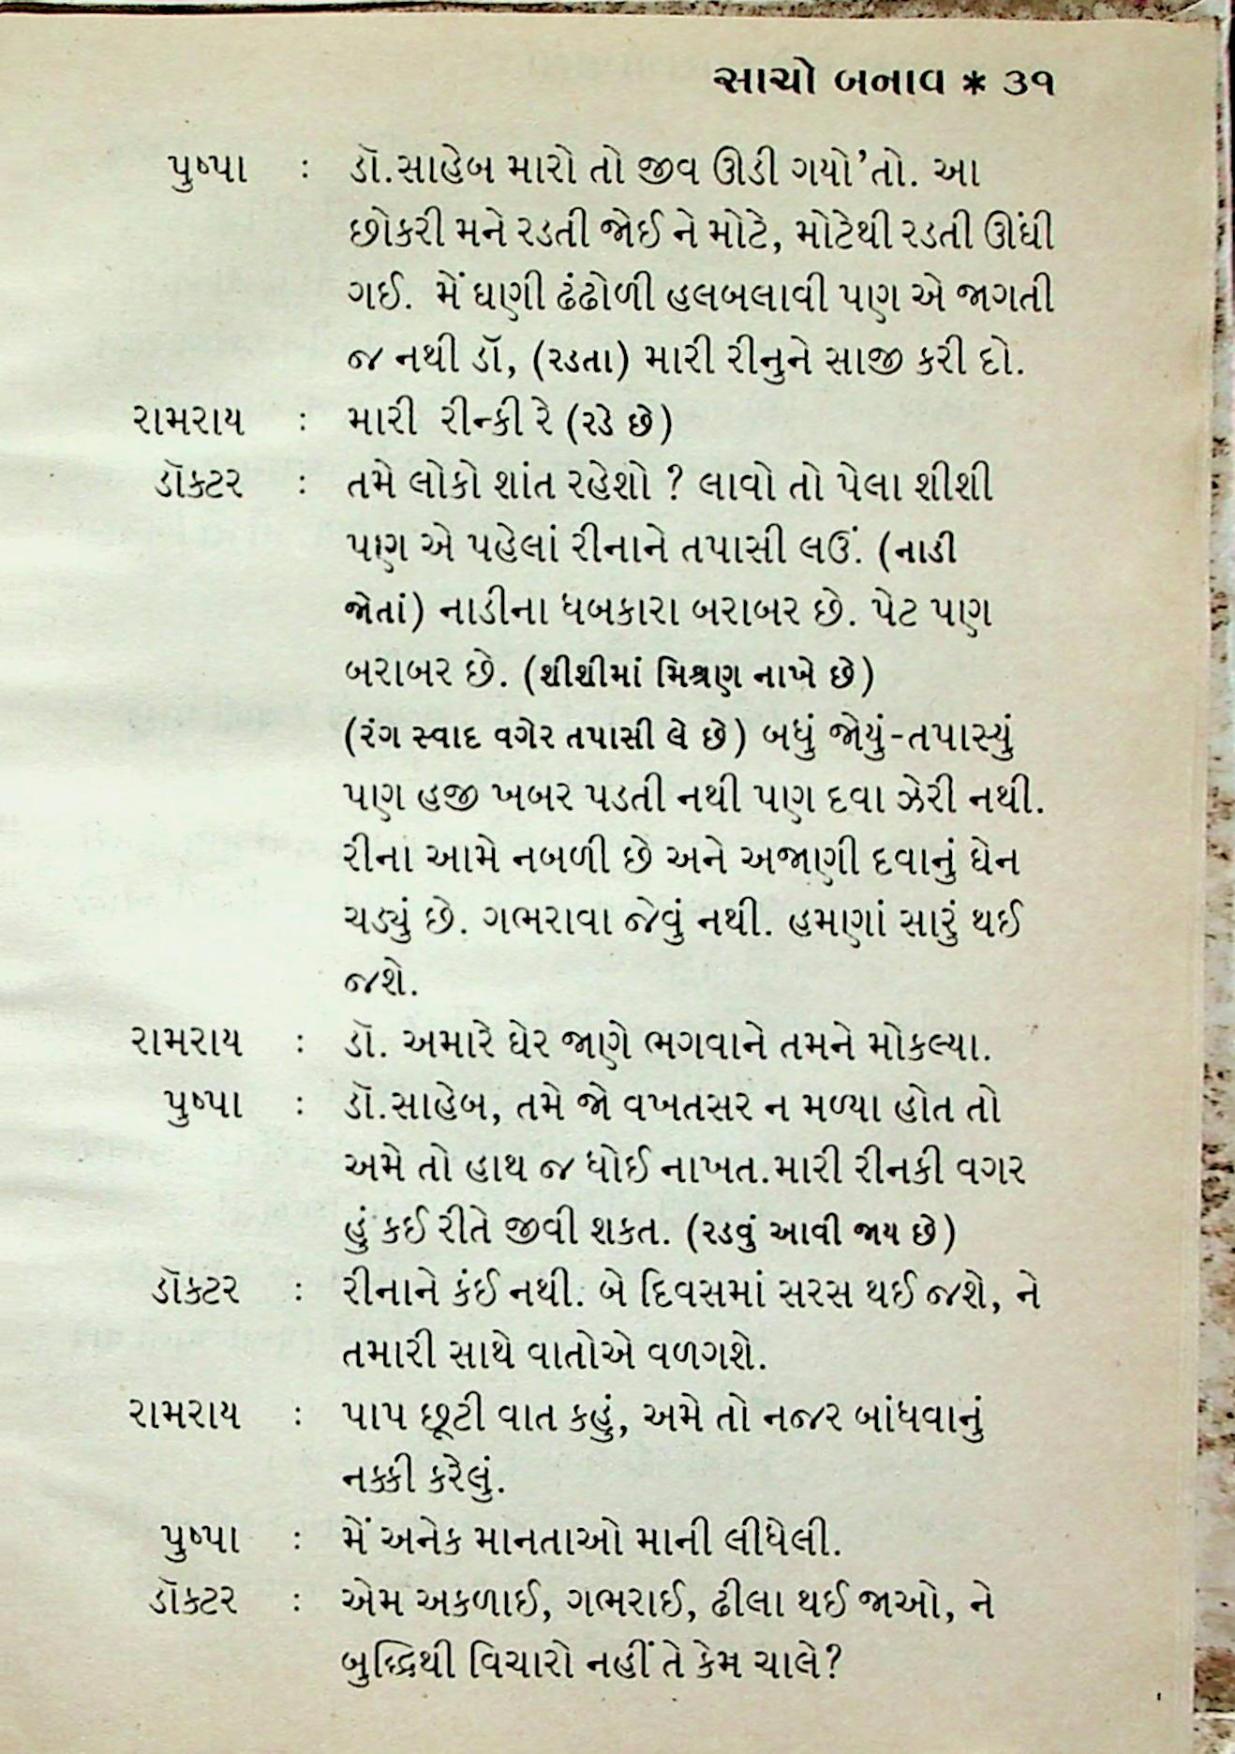 સાચો બનાવ * ૩૧
પુષ્પા : ડૉ.સાહેબ મારો તો જીવ ઊડી ગયો’તો. આ
છોકરી મને રડતી જોઈ ને મોટે, મોટેથી રડતી ઊંઘી
ગઈ. મેં ઘણી ઢંઢોળી હલબલાવી પણ એ જાગતી
જ નથી ડૉ, (રડતા) મારી રીનુને સાજી કરી દો.
રામરાય : મારી રીન્કી રે (રડે છે)
ડૉક્ટર : તમે લોકો શાંત રહેશો ? લાવો તો પેલા શીશી
પણ એ પહેલાં રીનાને તપાસી લઉં. (નાડી
જોતાં) નાડીના ધબકારા બરાબર છે. પેટ પણ
બરાબર છે. (શીશીમાં મિશ્રણ નાખે છે)
(રંગ સ્વાદ વગેર તપાસી લે છે) બધું જોયું-તપાસ્યું
પણ હજી ખબર પડતી નથી પણ દવા ઝેરી નથી.
રીના આમે નબળી છે અને અજાણી દવાનું ઘેન
ચડ્યું છે. ગભરાવા જેવું નથી. હમણાં સારું થઈ
જશે.
રામરાય : ડૉ. અમારે ઘેર જાણે ભગવાને તમને મોકલ્યા.
પુષ્પા : ડૉ.સાહેબ, તમે જો વખતસર ન મળ્યા હોત તો
અમે તો હાથ જ ધોઈ નાખત.મારી રીનકી વગર
હું કઈ રીતે જીવી શકત. (રડવું આવી જાય છે)
ડૉક્ટર : રીનાને કંઈ નથી. બે દિવસમાં સરસ થઈ જશે, ને
તમારી સાથે વાતોએ વળગશે.
રામરાય : પાપ છૂટી વાત કહું, અમે તો નજર બાંધવાનું
નક્કી કરેલું.
પુષ્પા : મેં અનેક માનતાઓ માની લીધેલી.
ડૉક્ટર : એમ અકળાઈ, ગભરાઈ, ઢીલા થઈ જાઓ, ને
બુદ્ધિથી વિચારો નહીં તે કેમ ચાલે?